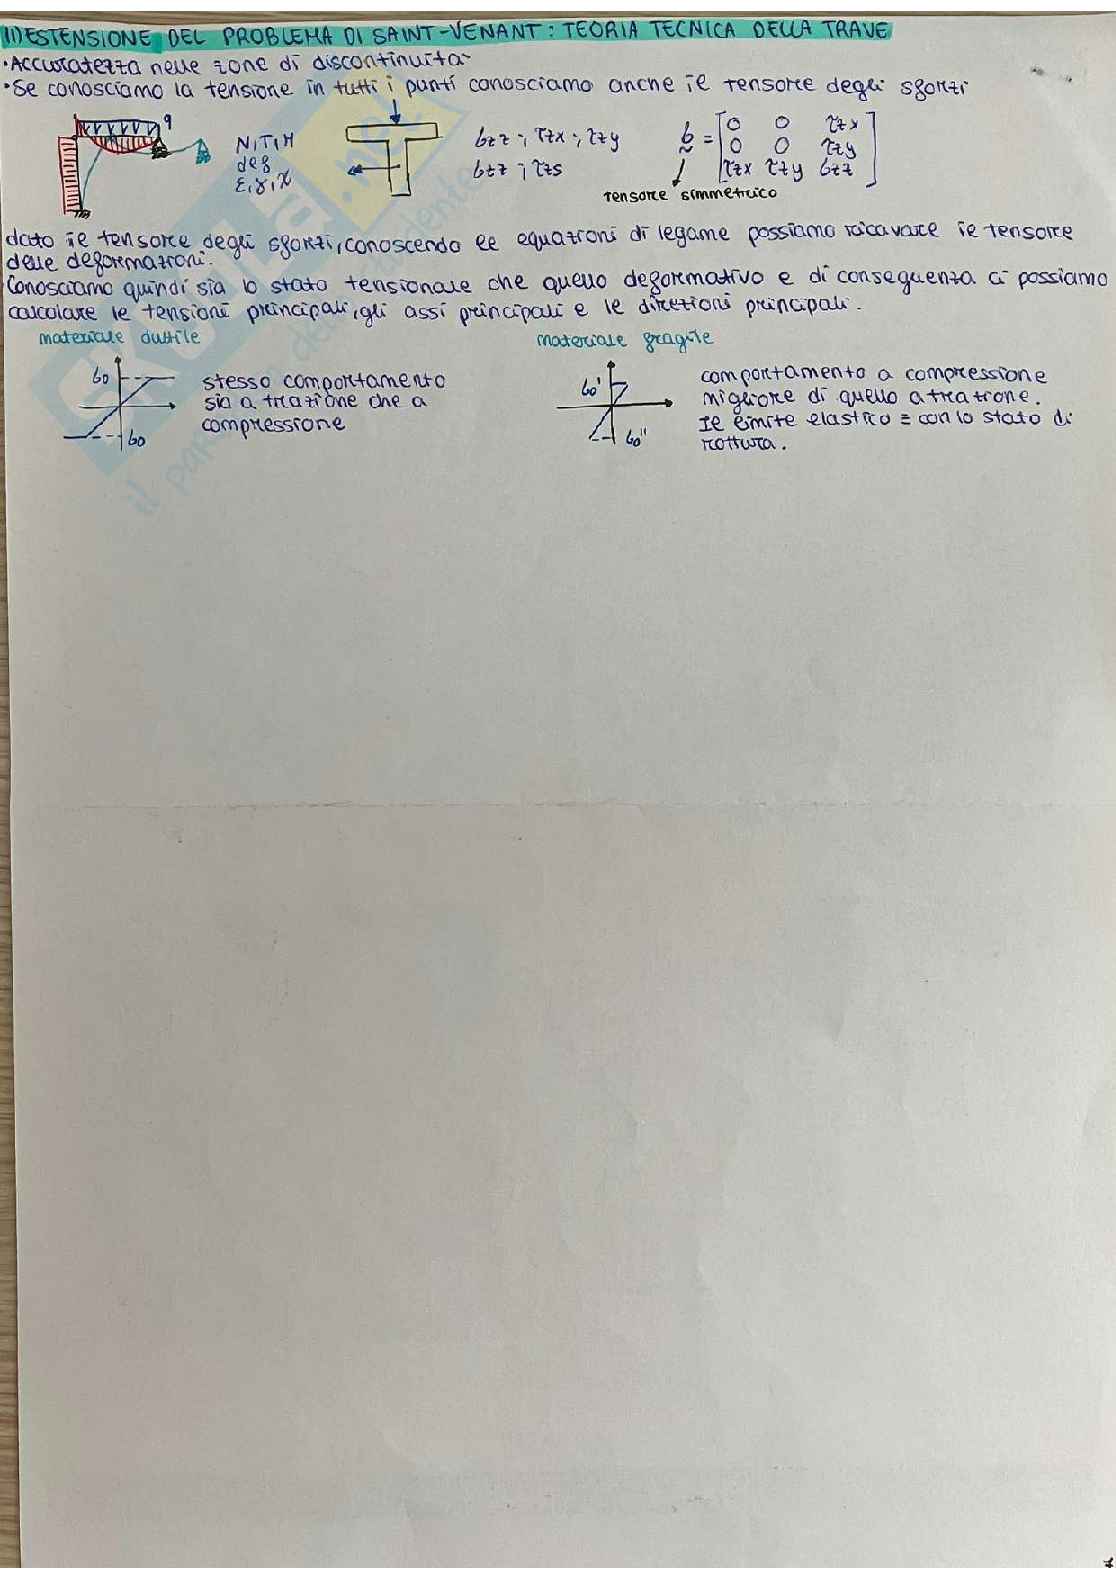 1) ESTENSIONE DEL PROBLEMA DI SAINT-VENANT: TEORIA TECNICA DELLA TRAVE
•Accuratezza nelle zone di discontinuità
•Se conosciamo la tensione in tutti i punti conosciamo anche il tensore degli sforzi
q
N,T,M
def
ε,γ,χ
σzz ; τzx ; τzy
σzz ; τzs
σ = [0 0 τzx
0 0 τzy
τzx τzy σzz]
tensore simmetrico
dato il tensore degli sforzi, conoscendo le equazioni di legame possiamo ricavare il tensore
delle deformazioni.
Conosciamo quindi sia lo stato tensionale che quello deformativo e di conseguenza ci possiamo
calcolare le tensioni principali, gli assi principali e le direzioni principali.
materiale duttile
σo
σo
stesso comportamento
sia a trazione che a
compressione
materiale fragile
σo'
σo"
comportamento a compressione
migliore di quello a trazione.
Il limite elastico = con lo stato di
rottura.